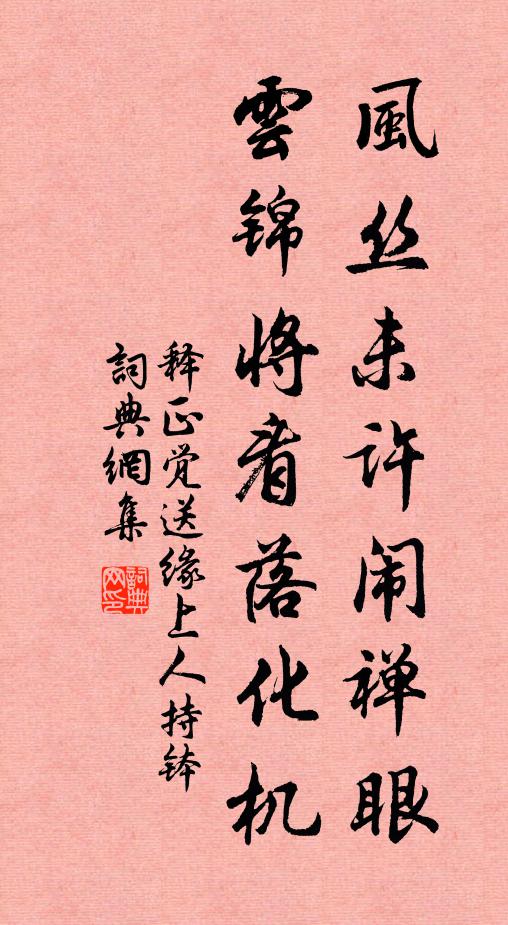 風丝未许闹禅眼
雲锦将看落化机
释正觉送缘上人持钵
詞典網集
詞典网印